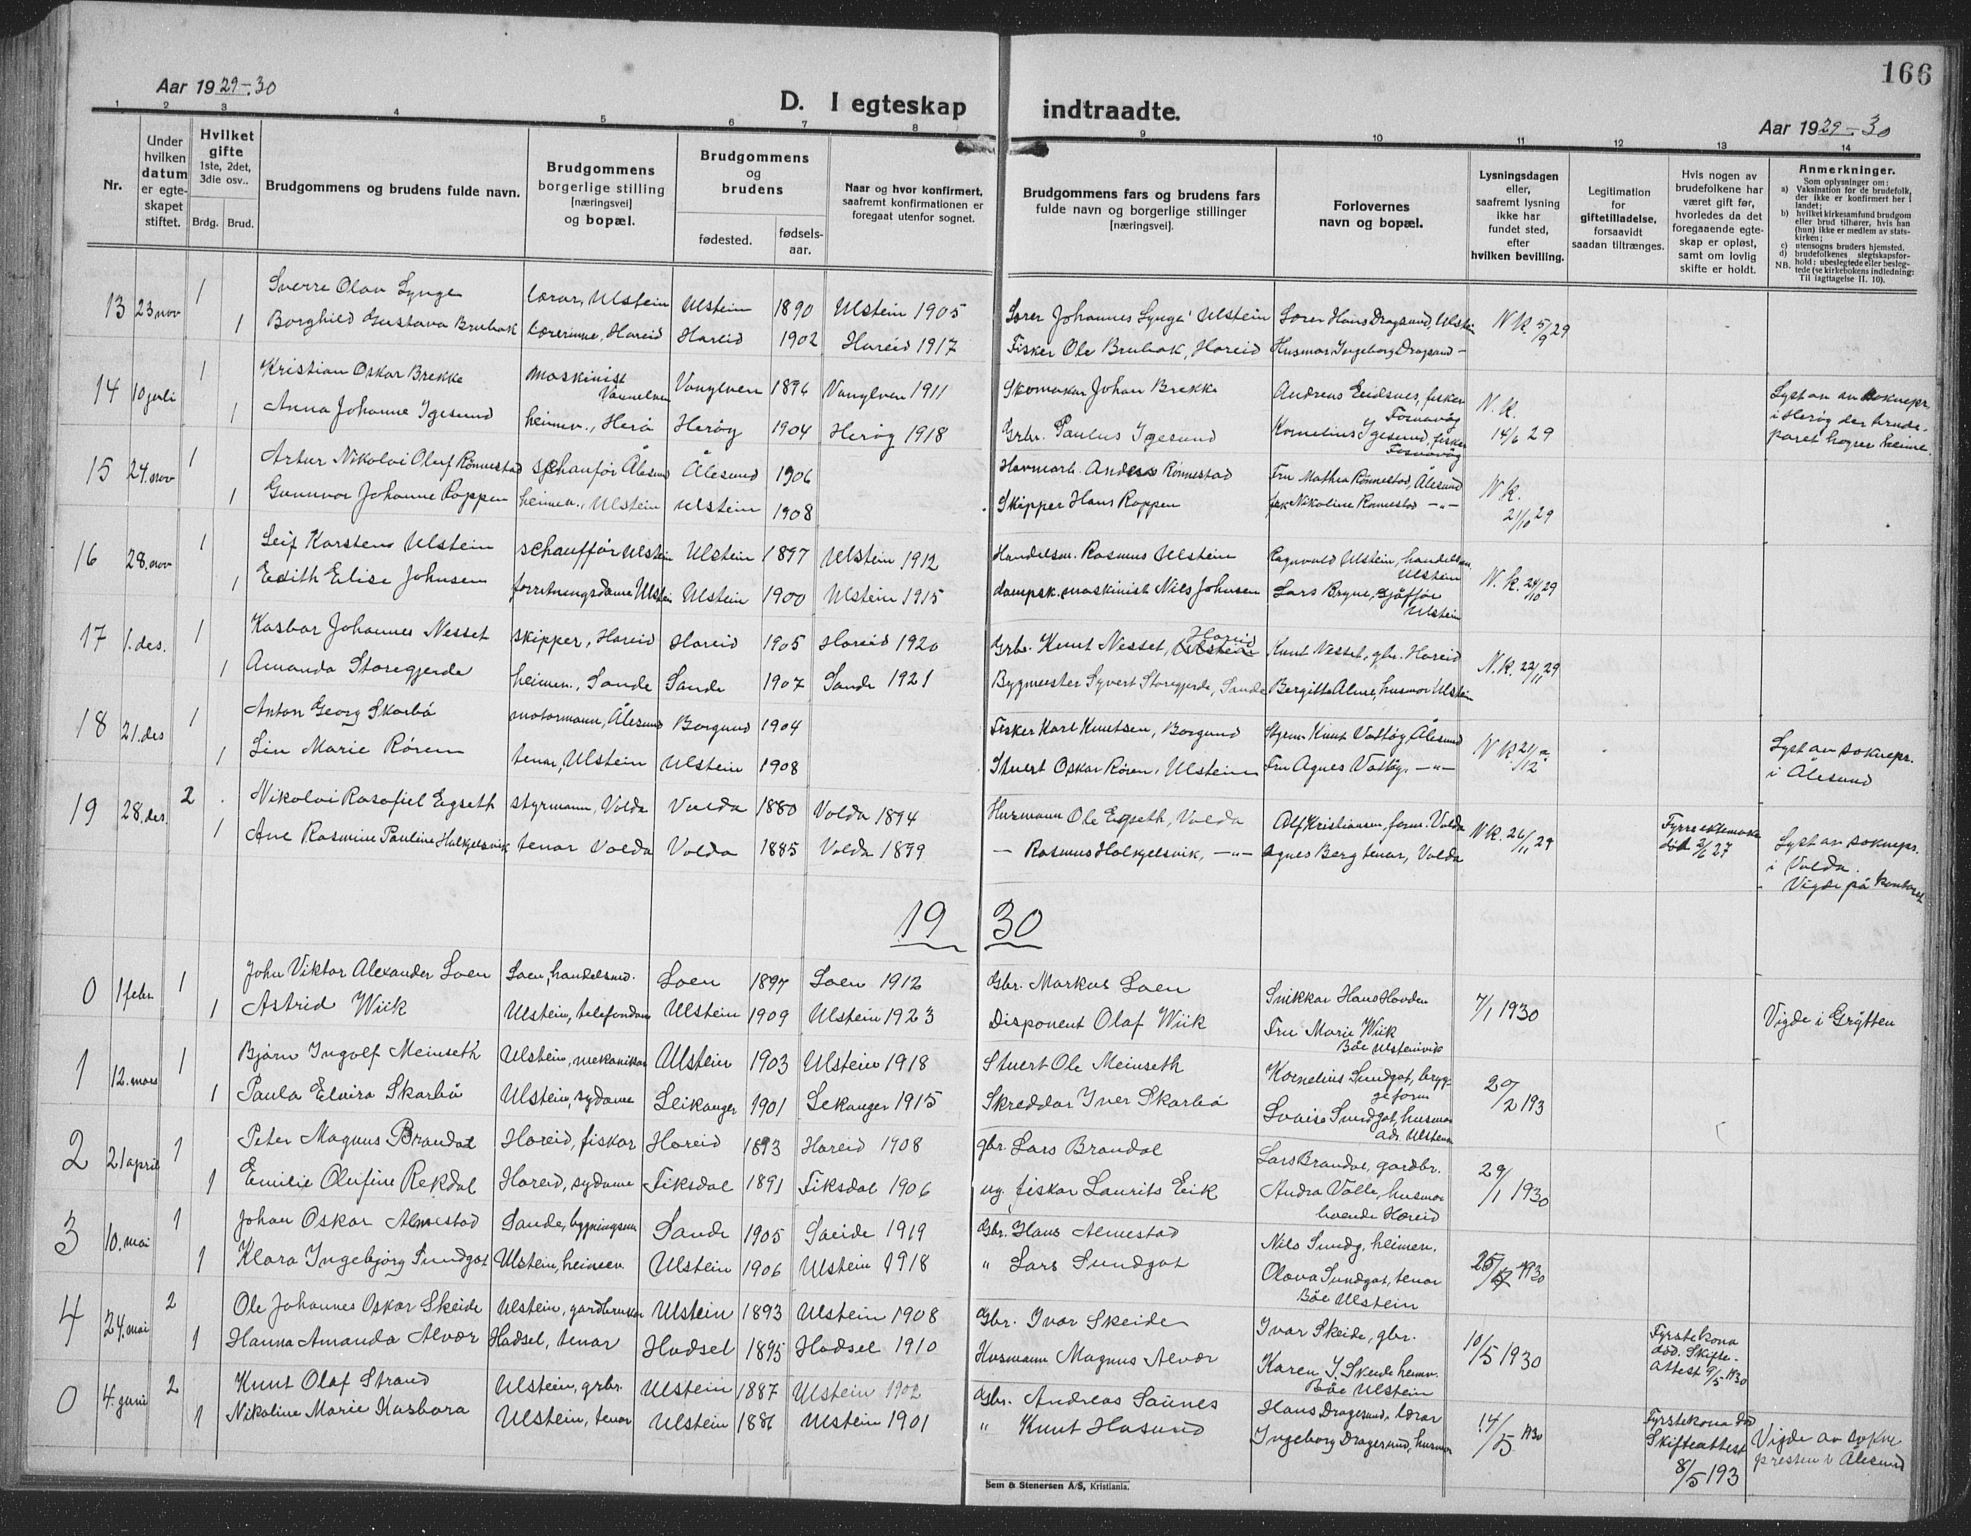 166
Aar 1929-30
D. I egteskap indtraadte.
Aar 1929-30
1 2 3 4 5 6 7 8 9 10 11 12 13 14
Nr.
Under hvilken datum er egteskapet stiftet.
Hvilket gifte 1ste, 2det, 3die osv..
Brdg. Brud.
Brudgommens og brudens fulde navn.
Brudgommens borgerlige stilling [næringsvei] og bopæl.
Brudgommens og brudens
fødested. fødselsaar.
Naar og hvor konfirmert, saafremt konfirmationen er foregaat utenfor sognet.
Brudgommens fars og brudens fars fulde navn og borgerlige stillinger [næringsvei].
Forlovernes navn og bopæl.
Lysningsdagen eller, saafremt lysning ikke har fundet sted, efter hvilken bevilling.
Legitimation for giftetilladelse, forsaavidt saadan tiltrænges.
Hvis nogen av brudefolkene har været gift før, hvorledes da det foregaaende egteskap er opløst, samt om lovlig skifte er holdt.
Anmerkninger.
Som oplysninger om:
a) Vaksination for de brudefolk, der ikke er konfirmert her i landet;
b) hvilket kirkesamfund brudgom eller brud tilhører, hvis han (hun) ikke er medlem av statskirken;
c) utensogns bruders hjemsted.
d) brudefolkenes slegtskapsforhold: ubeslegtede eller beslegtede (se kirkebokens indledning:
NB. Til iagttagelse II. 10).
13 23 nov 1 Sverre Olav Lynge lærar, Ulstein Ulstein 1890 Ulstein 1905 Lærer Johannes Lynge Ulstein Lærer Hans Dragsund, Ulstein N K 5/9 29
1 Borghild Gustava Brubak lærerinne, Hareid Hareid 1902 Hareid 1917 Fisker Ole Brubak, Hareid Husmor Ingeborg Dragsund -
14 10 juli 1 Kristian Oskar Brekke maskinist Vannelven Vanylven 1896 Vanylven 1911 Skomakar Johan Brekke Andreas Eidsnes, fisker Fosnavåg N. K. 14/6 29 Lyst av av soknepr. i Herøy der brudeparet høyrer heime.
1 Anna Johanne Igesund heimev., Herø Herøy 1904 Herøy 1918 Grbr. Paulus Igesund Kornelius Igesund, fisker Fosnavåg
15 24. nov 1 Artur Nikolai Oluf Rønnestad schaufør Ålesund Ålesund 1906 Havnearb. Anders Rønnestad Fru Mathea Rønnestad, Ålesund N K. 21/10 29
1 Gunnvor Johanne Roppen heimev., Ulstein Ulstein 1908 Skipper Hans Roppen frk Nikoline Rønnestad -"-
16 28. nov 1 Leif Karstens Ulstein schaufför Ulstein Ulstein 1897 Ulstein 1912 Handelsm. Rasmus Ulstein Ragnvald Ulstein, handelsm. Ulstein N. K. 24/10 29
1 Edith Elise Johnsen forretningsdame Ulstein Ulstein 1900 Ulstein 1915 dampsk. maskinist Nils Johnsen Lars Bryne, sjåffør Ulstein
17 1. des. 1 Kasbar Johannes Nesset skipper, Hareid Hareid 1905 Hareid 1920 Grbr. Knut Nesset, Hareid Knut Nesset, gbr. Hareid N. K. 22/11 29
1 Amanda Storegjerde heimev., Sande Sande 1907 Sande 1921 Bygmeester Syvert Storegjerde, Sande Bergitte Alme, husmor Ulstein
18 21. des 1 Anton Georg Skarbö motormann, Ålesund Borgund 1904 Fisker Karl Knutsen, Borgund Styrm Knut Vattøy, Ålesund N K 21/12 Lyst av soknepr. i Ålesund
1 Lin Marie Røren tenar, Ulstein Ulstein 1908 Stuert Oskar Røren, Ulstein Fru Agnes Vattøy, -"-
19 28. des. 2 Nikolai Rasafiel Egseth styrmann, Volda Volda 1880 Volda 1894 Husmann Ole Egseth, Volda Alf Kristiansen, form. Volda N K. 26/11 29 Fyrre ektemake död 2/6 27 Lyst av soknepr. i Volda. Vigde på kontoret
1 Ane Rasmine Pauline Halkjelsvik tenar Volda Volda 1885 Volda 1899 - Rasmus Halkjelsvik, -"- Agnes Berg tenar, Volda
19 30
0 1 febr 1 John Viktor Alexander Loen Loen, handelsmd. Loen 1897 Loen 1912 Gbr. Markus Loen Snikkar Hans Hovden 7/1 1930 Vigde i Grytten
1 Astrid Wiik Ulstein, telefondame Ulstein 1909 Ulstein 1923 Disponent Olaf Wiik Fru Marie Wiik Böe Ulsteinvik
1 12. mars 1 Bjarn Ingolf Meinseth Ulstein, mekanikar Ulstein 1903 Ulstein 1918 Stuert Ole Meinseth Kornelius Sundgot, bryggeform 20/2 193
1 Paula Elvira Skarbö Ulstein, sydame Leikanger 1901 Lekanger 1915 Skreddar Iver Skarbö Lovise Sundgot, husmor adr. Ulstein
2 21 april 1 Peter Magnus Brandal Hareid, fiskar Hareid 1893 Hareid 1908 gbr. Lars Brandal Lars Brandal, gardbr. 29/1 1930
1 Emilie Olufine Rekdal Hareid, sydame Fiksdal 1891 Fiksdal 1906 ug. fiskar Laurits Eik Andra Valle, husmor boende Hareid
3 10. mai 1 Johan Oskar Almestad Sande, bygningsm Sande 1905 Sande 1919 Gbr. Hans Almestad Nils Sundg, heimev. 25/ 1930
1 Klara Ingebjørg Sundgot Ulstein, heimeev Ulstein 1906 Ulstein 1918 " Lars Sundgot Olava Sundgot, tenar Böe Ulstein
4 24. mai 2 Ole Johannes Oskar Skeide Ulstein, gardbrukar Ulstein 1893 Ulstein 1908 Gbr. Ivar Skeide Ivar Skeide, gbr. 10/5 1930 Fyrstekona död. Skifteattest 9/5 1930
1 Hanna Amanda Alvær Hadsel, tenar Hadsel 1895 Hadsel 1910 Husmann Magnus Alvær Karen I. Skeide heimv. Böe Ulstein
0 4. juni 2 Knut Olaf Strand Ulstein, grbr. Ulstein 1887 Ulstein 1902 Gbr. Andreas Saunes Hans Dragesund, lærar 14/5 1930 Fyrstekona död Skifteattest 8/5 193 Vigde av soknepresten i Ålesund
1 Nikoline Marie Kasbara Ulstein, tenar Ulstein 1886 Ulstein 1901 " Knut Hasund Ingeborg Dragesund, husmor
Sem & Stenersen A/S, Kristiania.